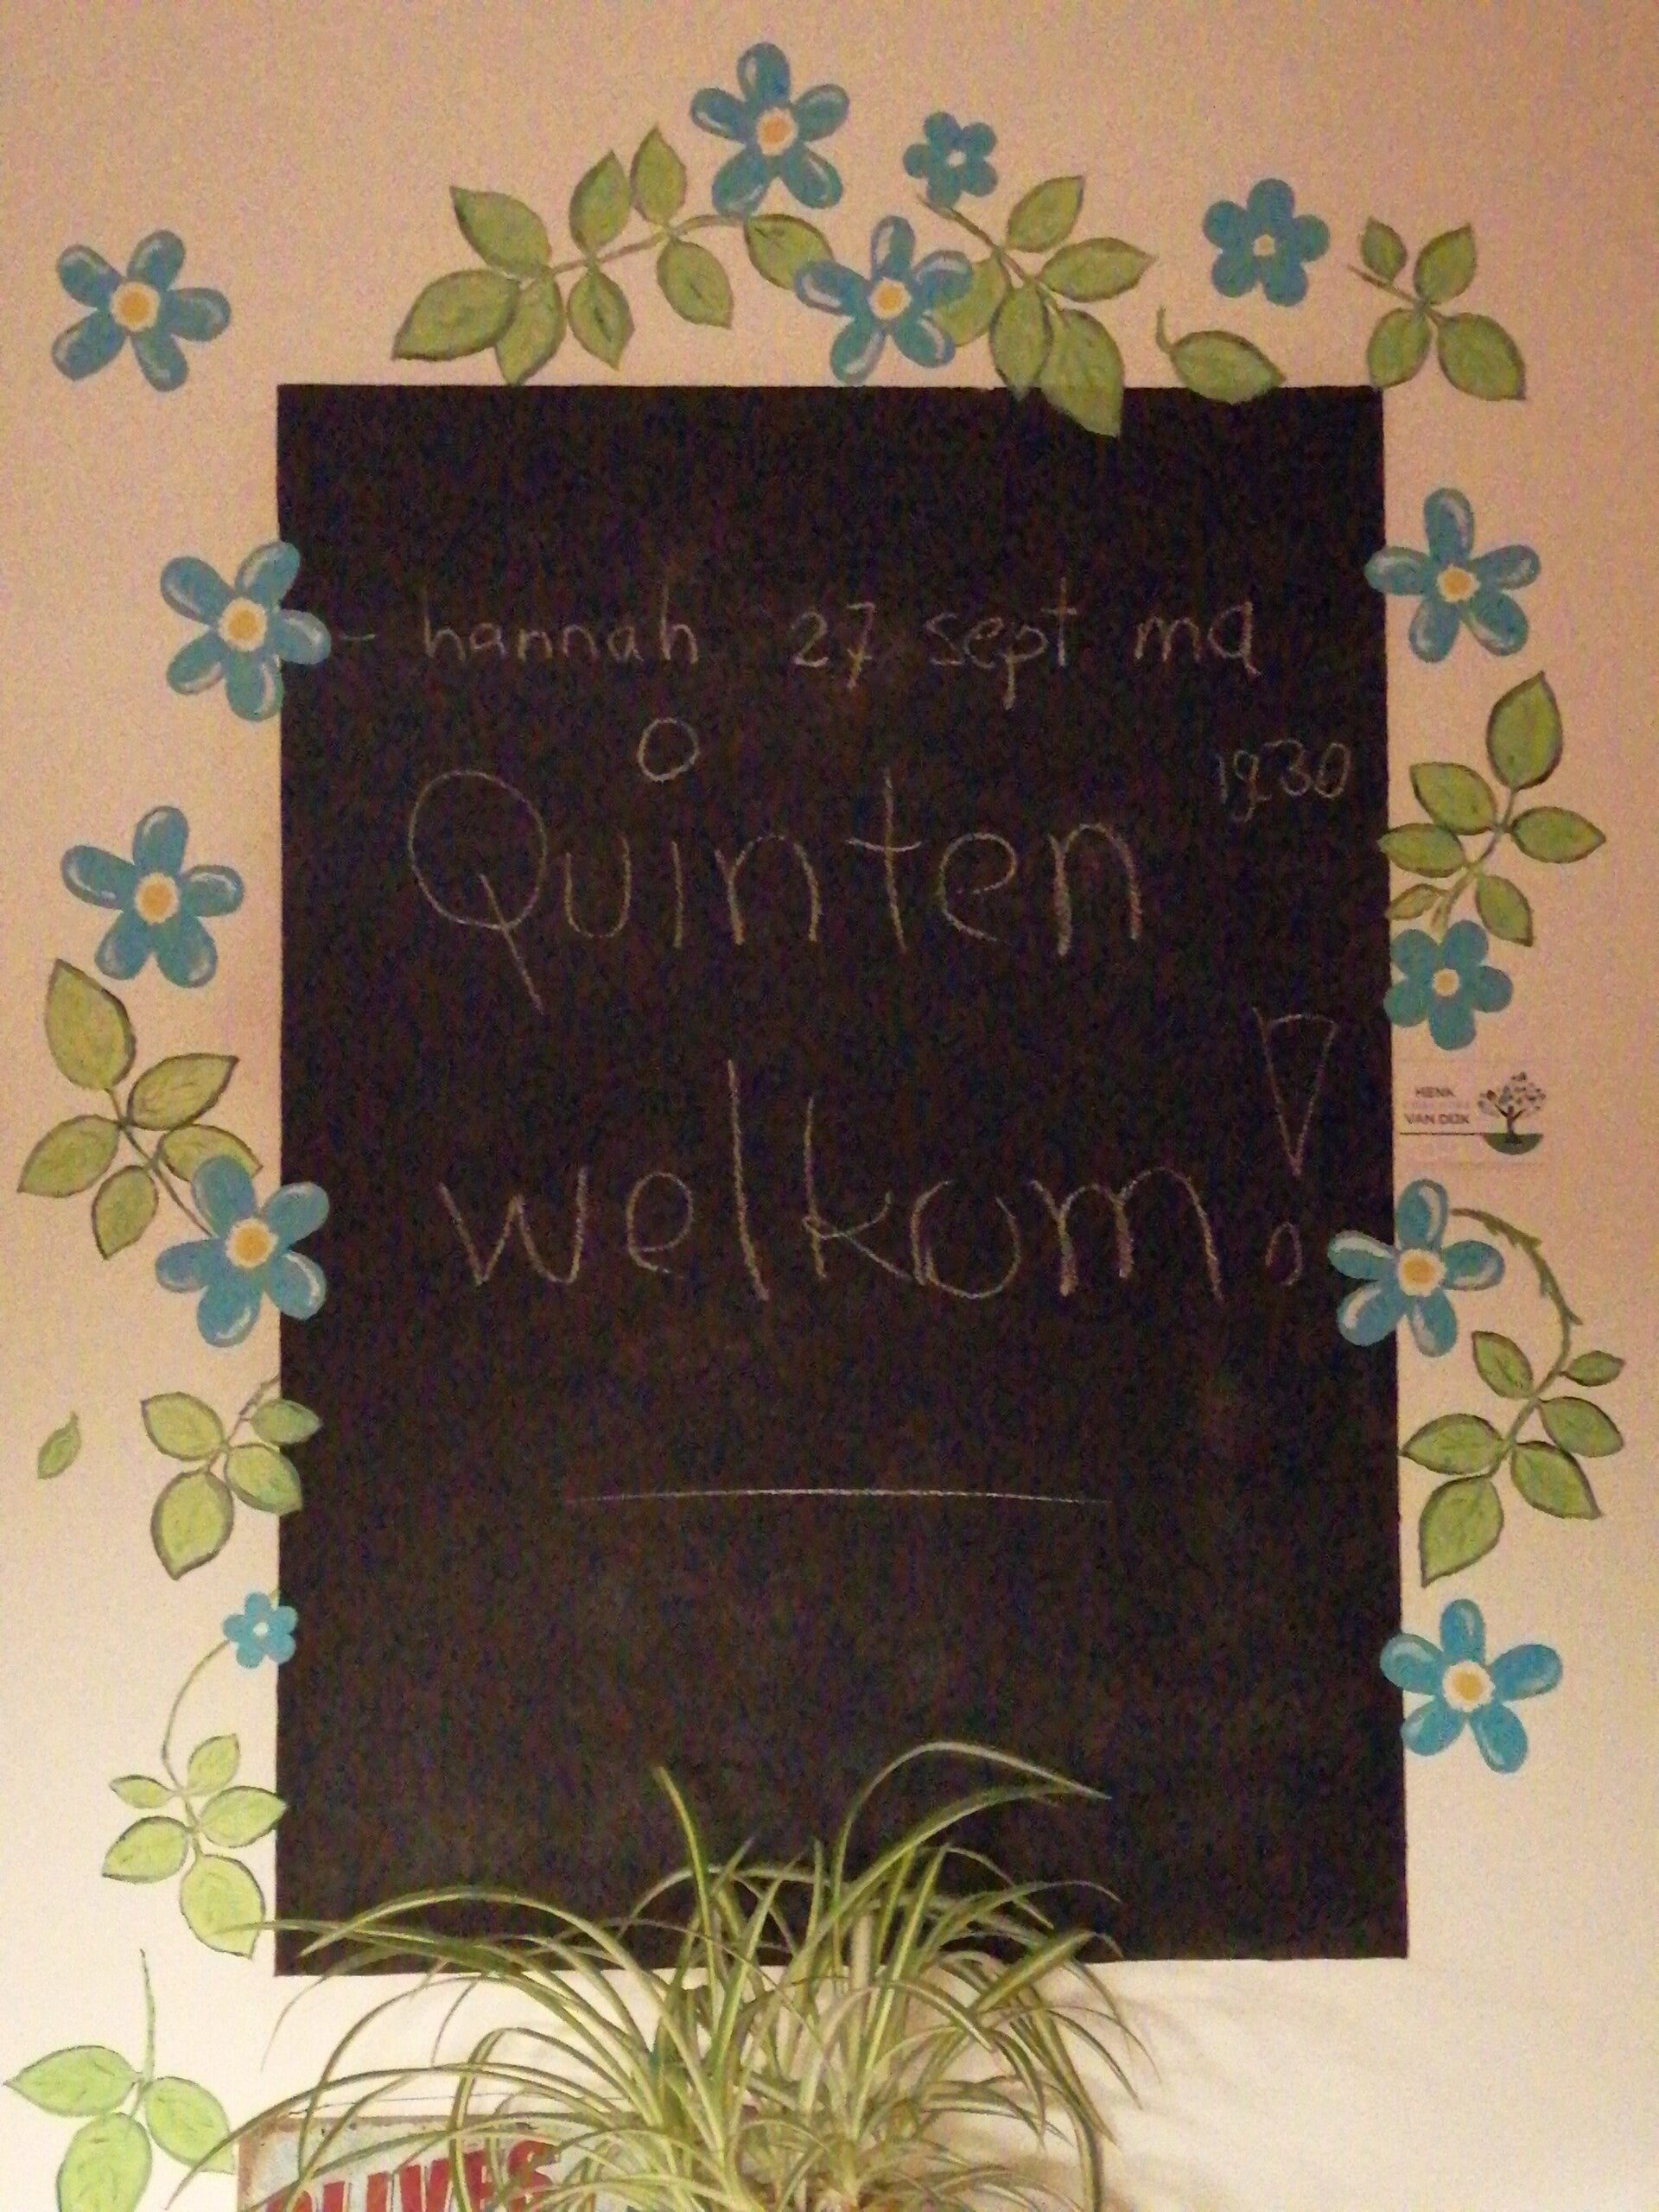 - hannah 27 sept ma
1930
Quinten
welkom!
HENK
VAN DIJK
OLIVES